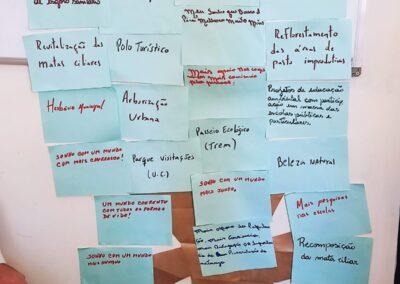 de esgoto sanitário
Revitalização das
matas ciliares
Herbário Municipal
SONHO COM UM MUNDO
COM MAIS CERRADO!
SONHO COM UM MUNDO
MAIS HUMANO
Polo Turístico
Arborização
Urbana
Parque visitações
(U.C.)
UM MUNDO COERENTE
COM TODAS AS FORMAS
DE VIDA!
Meu Sonho que Buscar
Mais apoio
Passeio Ecológico
(Trem)
SONHO COM UM MUNDO
MAIS JUSTO.
Reflorestamento
das áreas de
pasto improdutivas
Projetos de educação
ambiental com
escolas públicas e
particulares.
Beleza Natural
Mais pesquisas
nas escolas
Recomposição
da mata ciliar